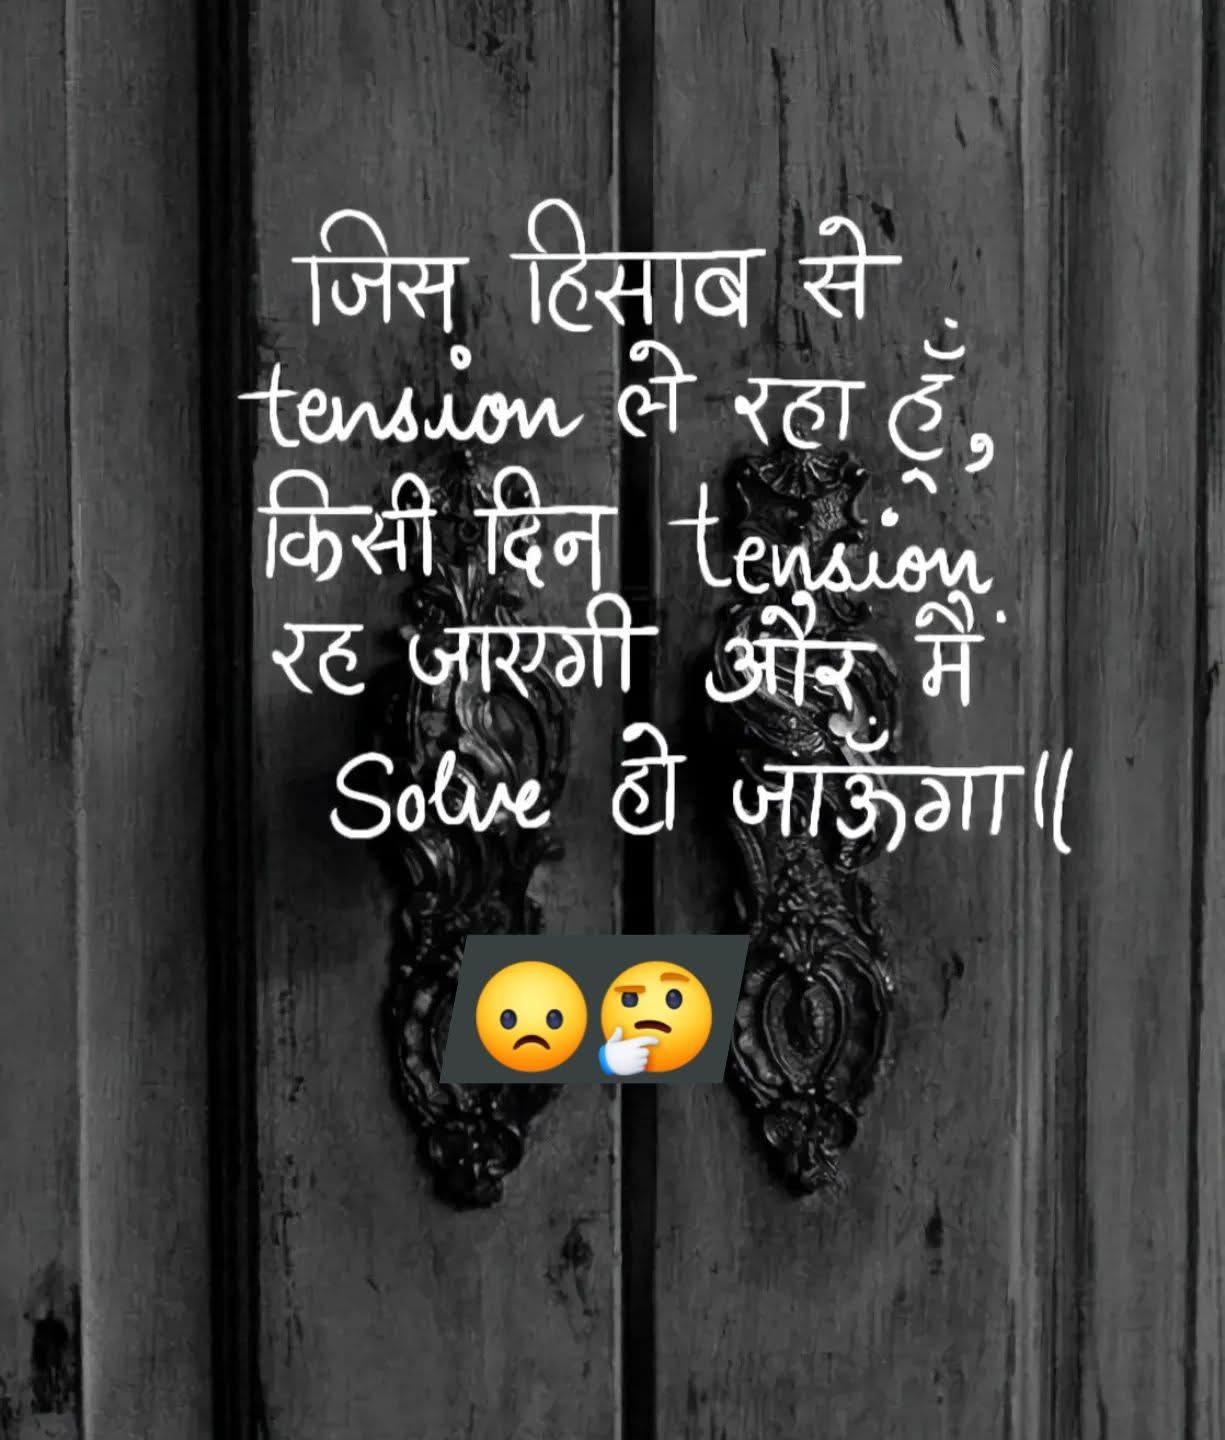 जिस हिसाब से
tension ले रहा हूँ,
किसी दिन tension
रह जाएगी और मैं
Solve हो जाऊँगा॥
☹️🤔